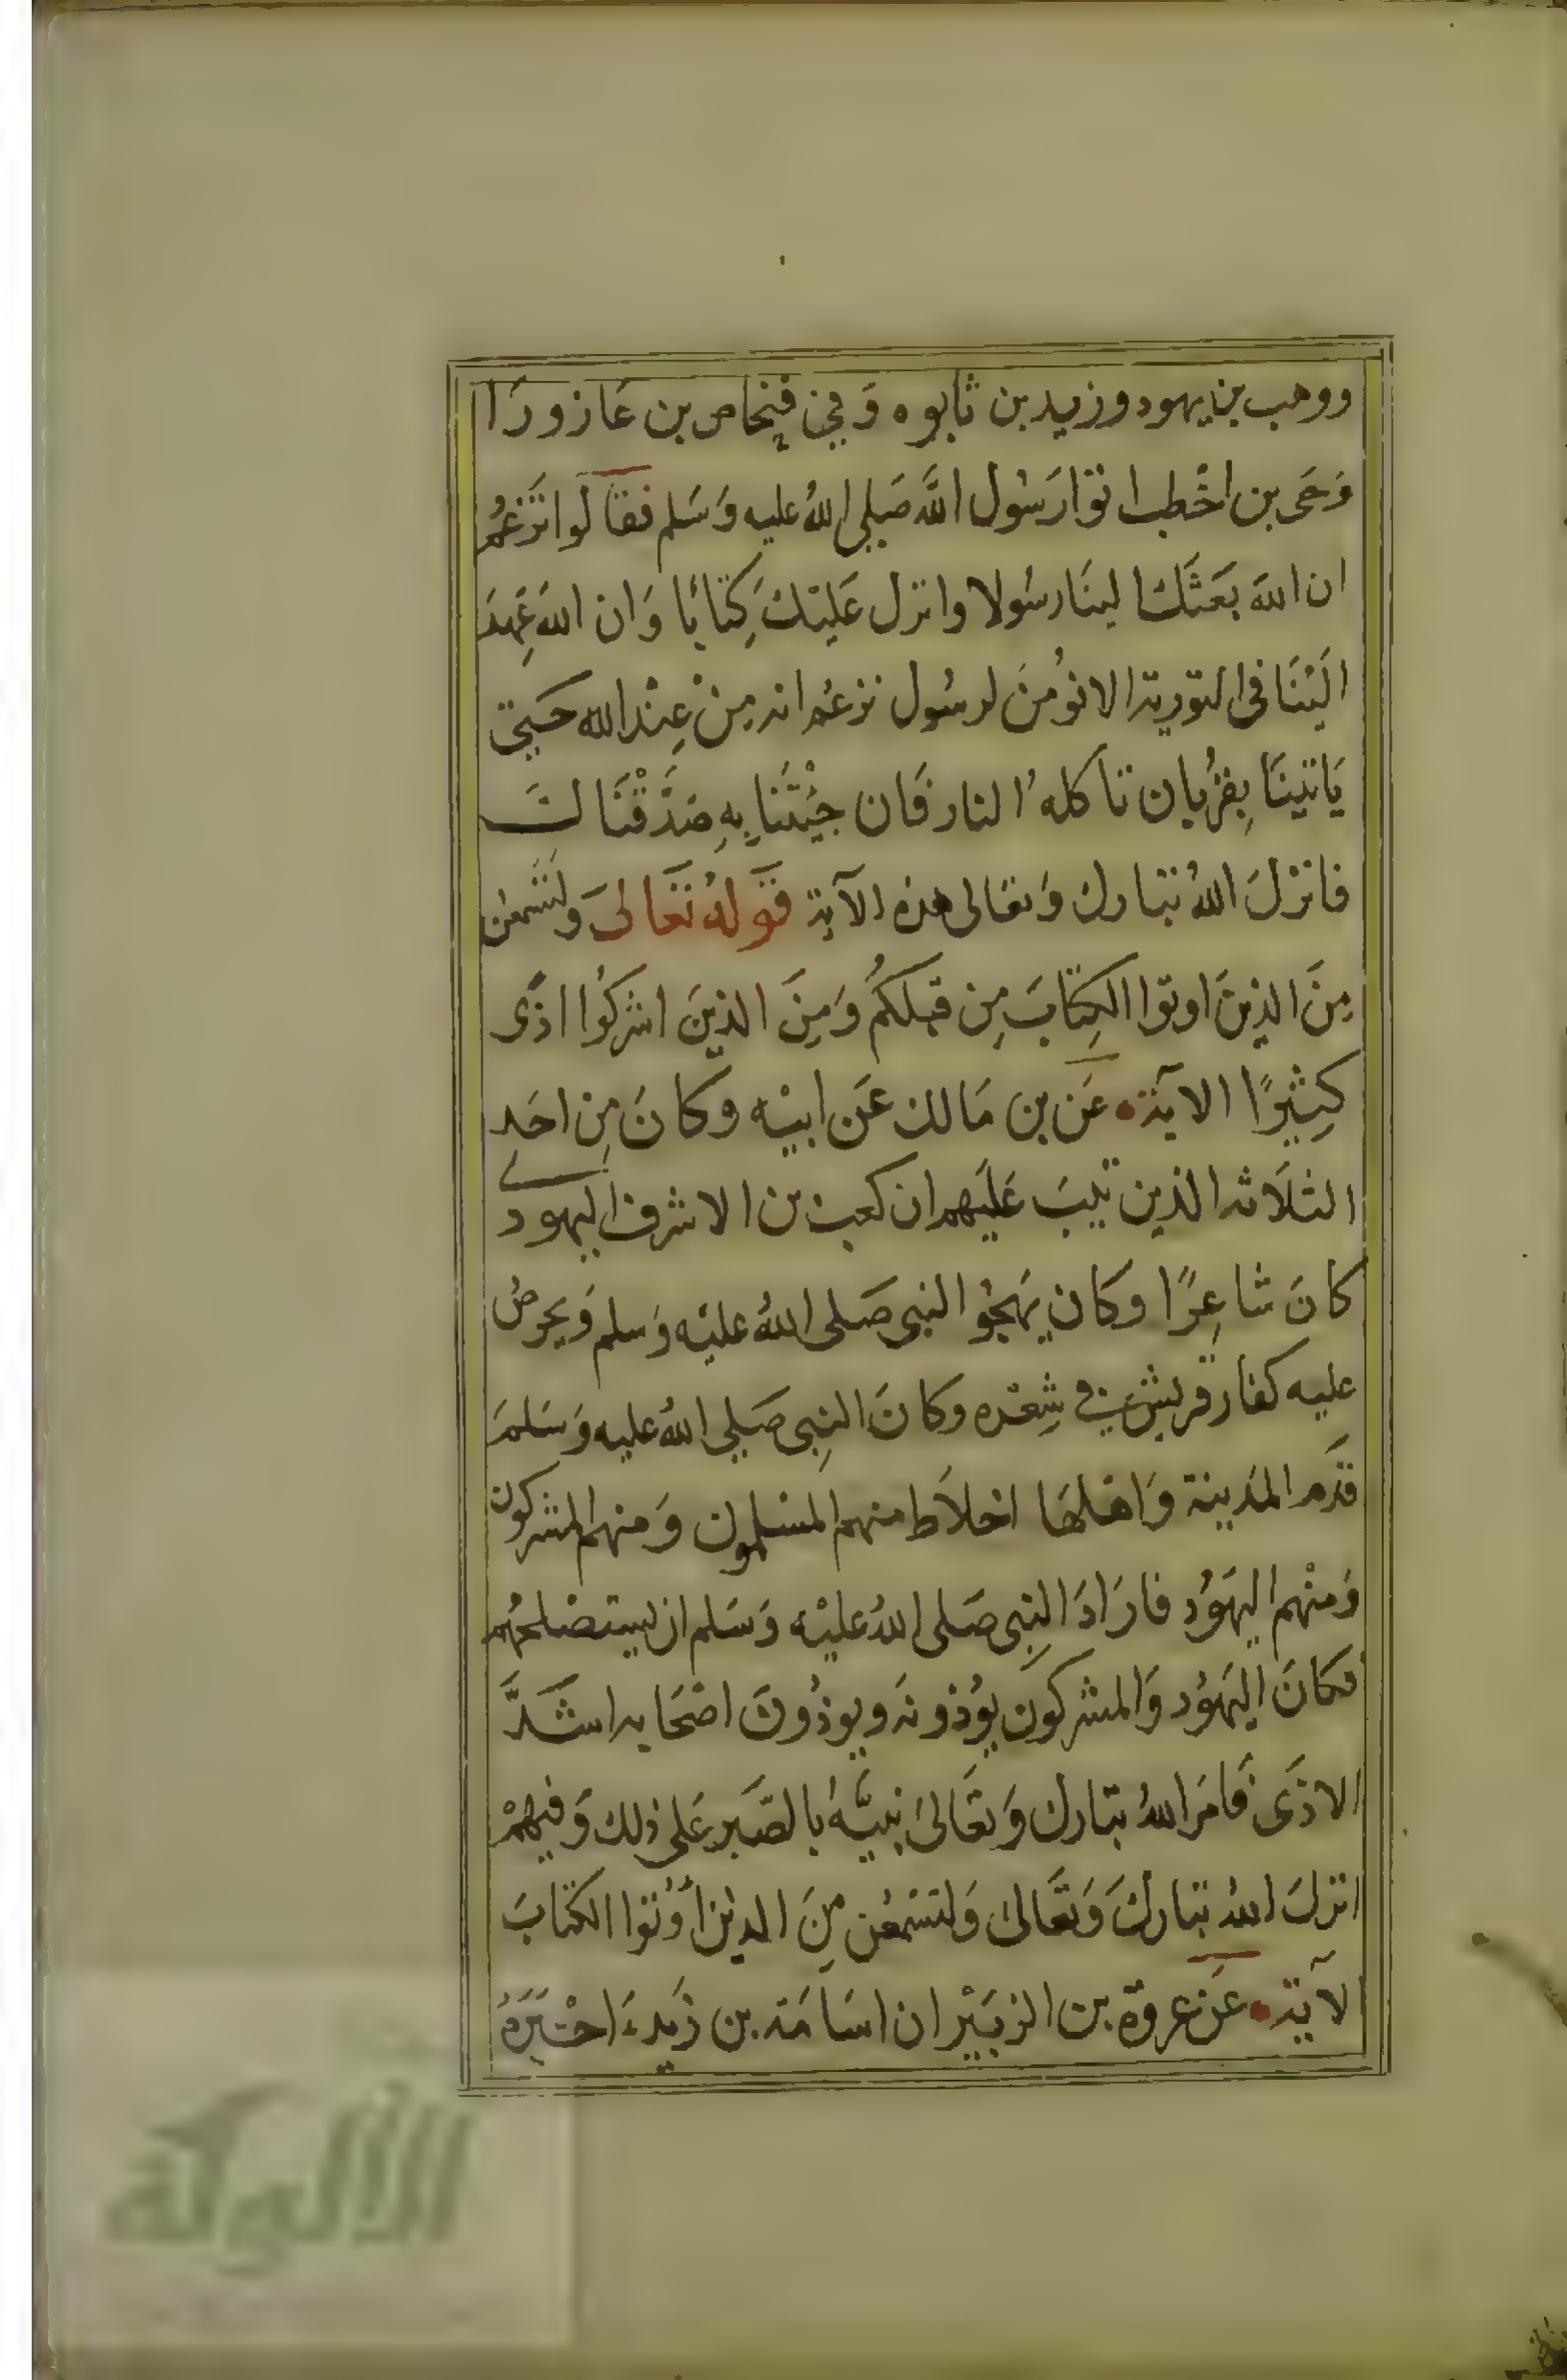 ووهب بن يهود وزيد بن تابوه وَفِي فِنحاص بن عَازورَا
وَحَى بن اخْطب اتوا رَسُول اللَّه صَلي اللهُ عليه وَسَلم فقالَوا تَزعُمُ
ان اللهَ بَعَثَكَ الينَا رسُولا وانزل عَليْكَ كِتابًا وَان اللهَ عَهِدَ
الَيْنَا في التورية الا نؤُمنَ لرسُول نزعُم انه مِنْ عِنْد الله حَتي
يَاتينَا بِقرُبان تاكله ُ النار فَان جِئْتَنا بِهِ صَدَّقْنَاكَ
فانزلَ اللهُ تبارك وَتعالى هذه الآية قوَلهُ تَعَالىَ وَلتَسْمعُن
مِنَ الذينَ اوتوا الكِتابَ مِن قبلكمُ وَمِنَ الذينَ اشركُوا اذًى
كِثيرًا الاية عَن بن مَالك عَن ابيْه وكانَ مِن احَد
الثلَاثه الذين تيبَ عَليَهم ان كعب بن الاشرف اليهودي
كانَ شاعِرًا وكان يَهجُو النبي صَلى اللهُ عليْه وَسلم وَيحرضُ
عليه كفار قريش في شِعْره وكانَ النبِي صَلي اللهُ عليه وَسَلمَ
قدَم المدَينة وَاهْلهَا اخلاَط منهم المسْلمون وَمنهم المشركون
وَمنْهم اليَهوُد فارَادَ النبِي صَلى اللهُ عليْه وَسَلم ان يستصْلحهُم
فكانَ اليَهوُد وَالمشركوَن يوُذونهَ ويوذُونَ اصْحَابه اشَدَّ
الاذَى فَامَرَ اللهُ تبارك وَتعَالىَ نبيَّهُ بالصَّبر عَلى ذلك وَفيهمْ
انزلَ اللهُ تباركَ وَتعَالىَ وَلتسْمعُن مِنَ الذينَ أوُتوا الكتابَ
لآية عَن عروة بن الزبَيْر ان اسَامَة بن زَيد اخْبَرَهُ
الألوكة